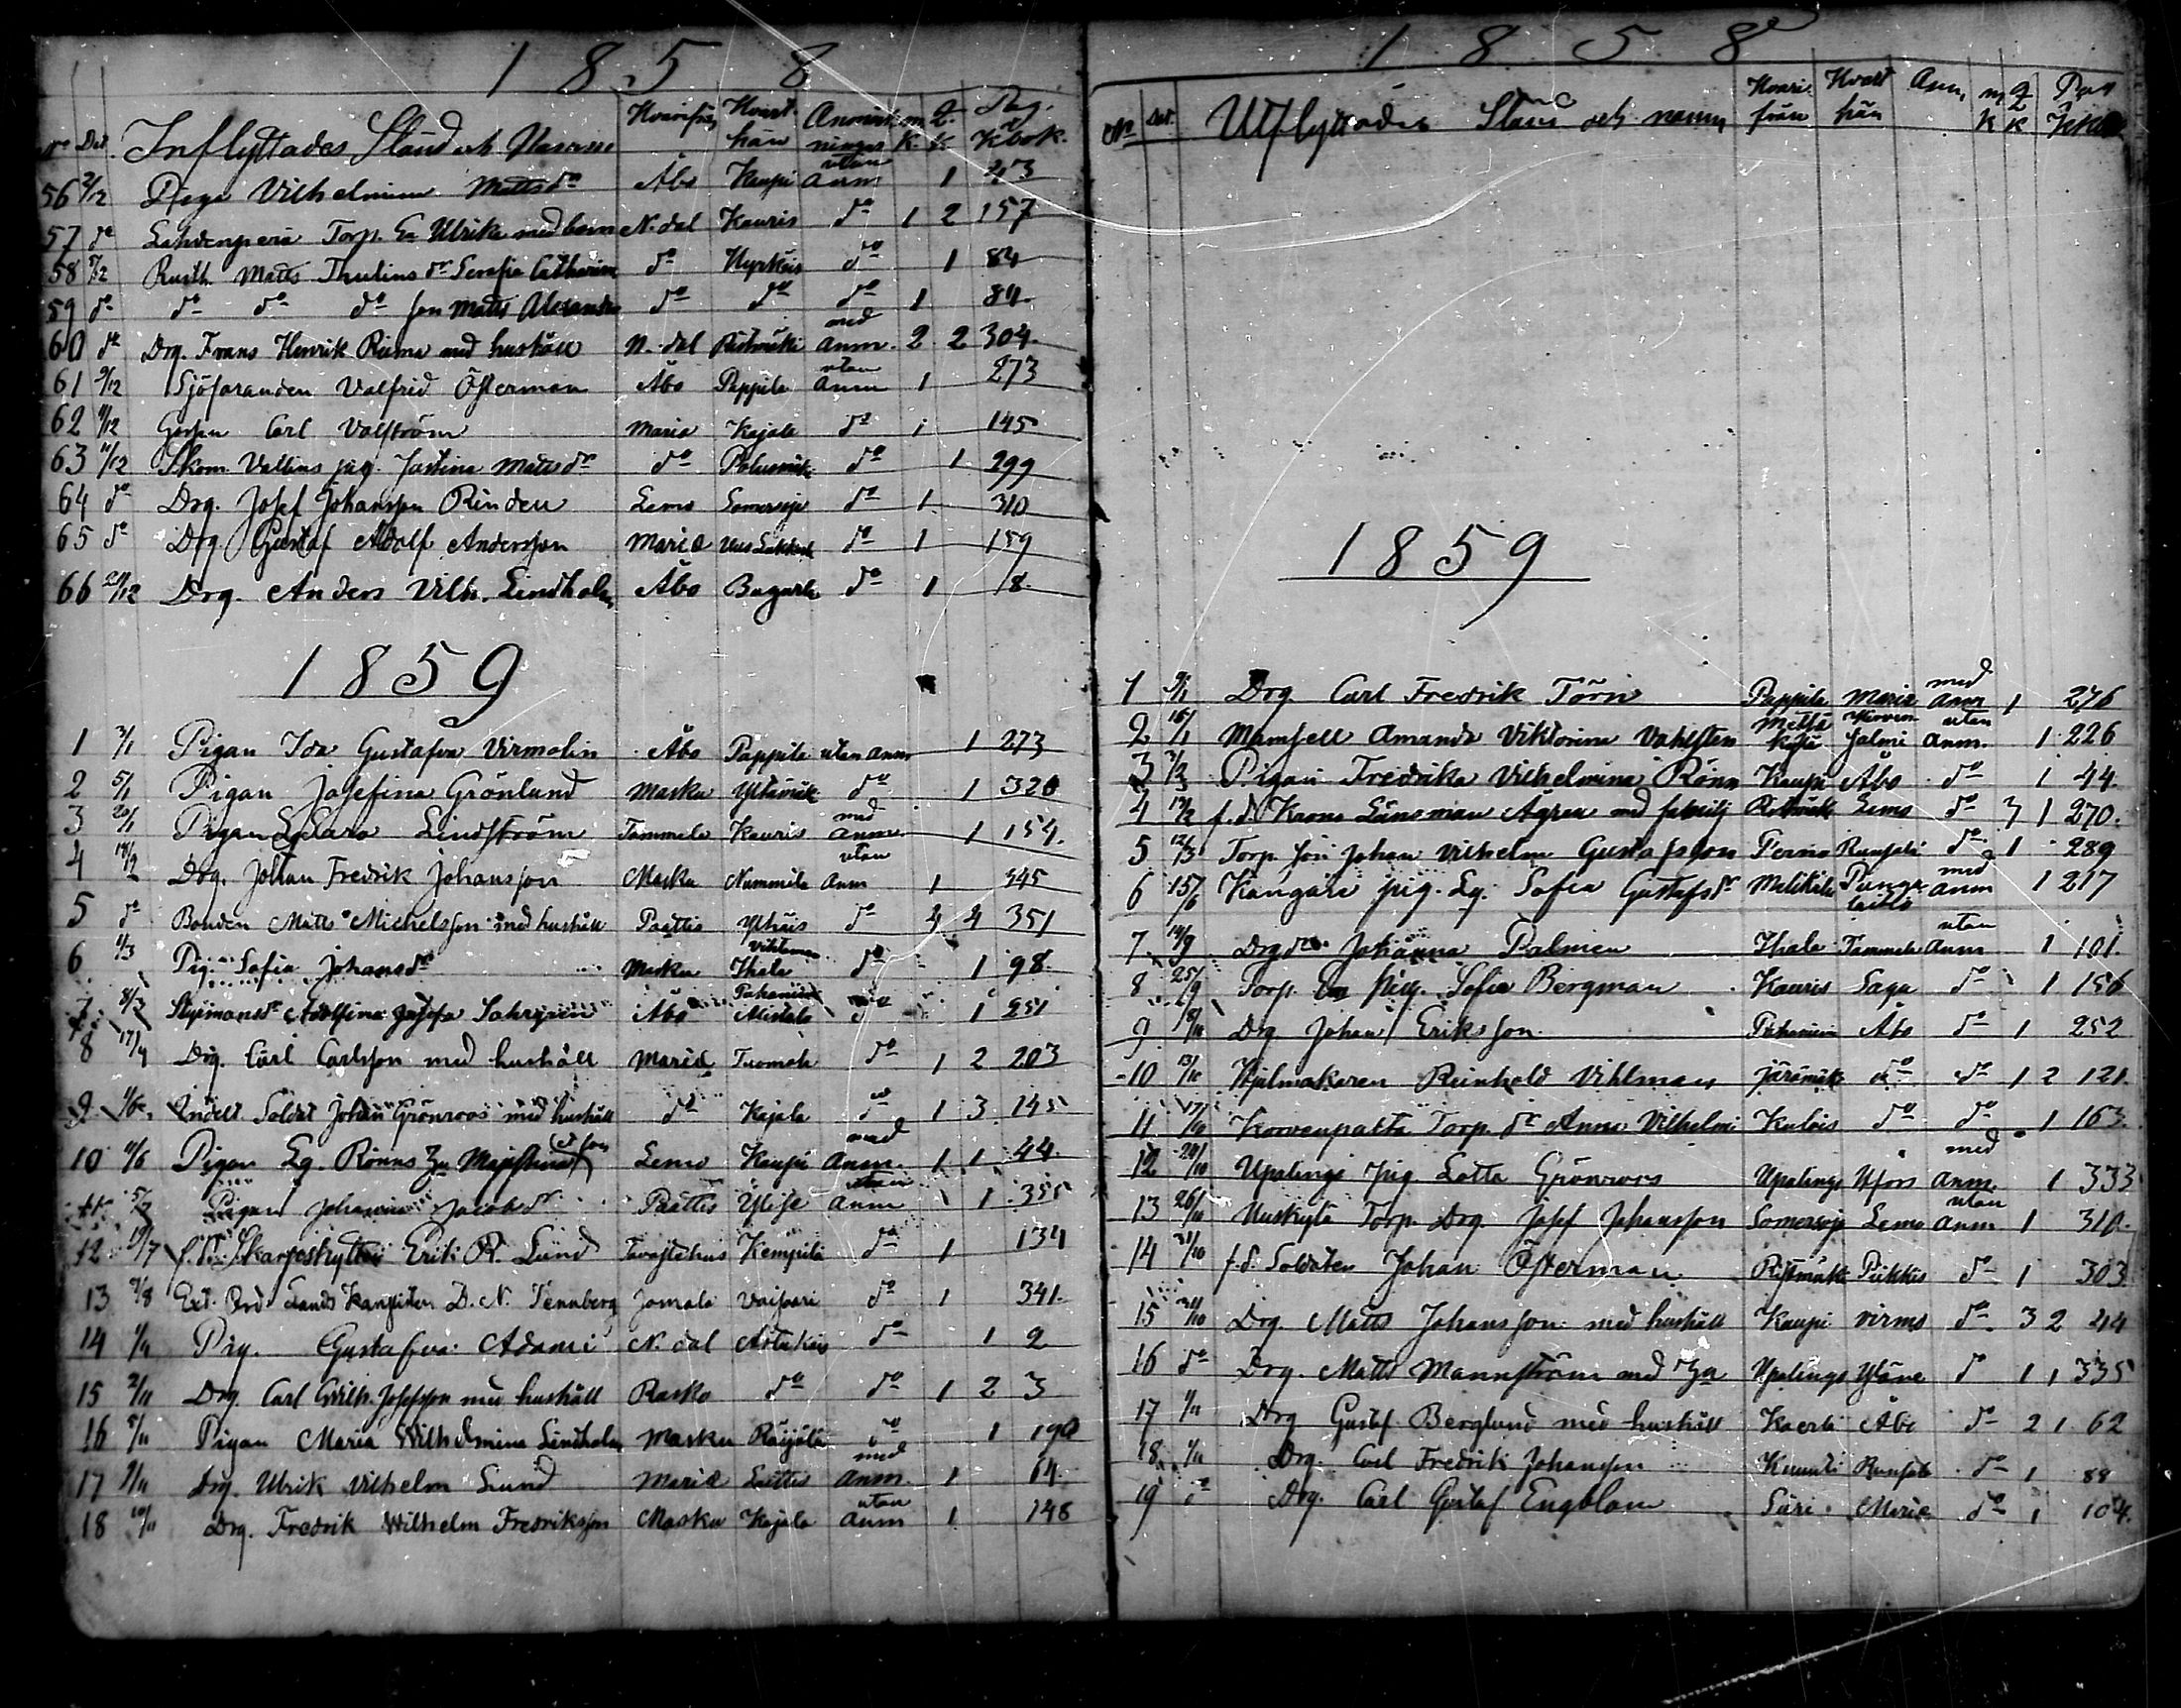 1858
No Dat. Inflyttades Stånd och Namn Hvarifrån Hvart hän Anmärkningar m. k. q. k. Pag. i Kbok.
56 2/12 Piga Vilhelmina Mattsdr Åbo Kaupi utan Anm 1 43
57 do Torp. Ea Ulrika med barn N.dal Kauris do 1 2 157
58 5/12 Rusth. Matts Thulins dr Serafia Catharina do do 1 84
59 do do do do son Matts Alexander do do do 1 84
60 do Drg. Frans Henrik Riema med hushåll N.dal Ristimäki med Anm. 2 2 304
61 9/12 Sjöfaranden Valfrid Österman Åbo Pappila utan Anm 1 273
62 11/12 Gossen Carl Valström Maria Kajala do 1 145
63 11/12 Skom. Vallins pig. Justina Mattsdr do do 1 299
64 do Drg. Josef Johansson Rinden Lemo Somersoja do 1 310
65 do Drg. Gustaf Adolf Andersson Mariæ do 1 159
66 20/12 Drg. Anders Vilh. Lindholm Åbo do 1 18
1859
1 3/1 Pigan Ida Gustafva Virmolin Åbo Pappila utan anm 1 273
2 5/1 Pigan Josefina Grönlund Masku do 1 320
3 20/1 Pigan Lindström Tammela Kauris med Anm. 1 154.
4 Drg. Johan Fredrik Johansson Masku Nummila utan Anm 1 345
5 do Bonden Matts Michelsson med hushåll Paattis do 4 4 351
6 1/3 Pig. Sofia Johansdr Masku Ihala do 1 98
7 8/3 Adolfina Josefa Åbo do 1 251
8 17/4 Drg. Carl Carlsson med hushåll Mariæ Tuomola do 1 2 203
9 Indelt Soldat Johan Grönroos med hushåll do Kajala do 1 3 145
10 11/6 Pigan Eg. Rönns Lemo Kaupi med Anm. 1 1 44
11 5/7 Pigan Johanna Jacobsdr Paattis utan Anm 1 355
12 f.d. Skarpskytten Erik R. Lund Tavastehus Kempilä do 1 134
13 9/8 Ext. Ord. Lands Kanslisten D. N. Tennberg Jomala do 1 341
14 1/11 Pig. Gustafva Adami N.dal do 1 2
15 2/11 Drg. Carl Wilh. Josefsson med hushåll Rasko do do 1 2 3
16 5/11 Pigan Maria Wilhelmina Lindholm Masku Räijälä do 1 190
17 9/11 Drg. Ulrik Vilhelm Lund Mariæ med Anm. 1 64
18 10/11 Drg. Fredrik Wilhelm Fredriksson Masku Kajala utan Anm 1 148
1858
No Dat. Utflyttades Stånd och namn Hvarifrån Hvart hän Anm. m k q k Pag
1859
1 Drg. Carl Fredrik Törn Pappila Mariæ med Anm 1 276
2 16/1 Mamsell Amanda Viktorina Vahlsten utan Anm. 1 226
3 Pigan Fredrika Vilhelmina Rönn Kaupi Åbo do 1 44
4 f.d. Krono Länsman Ågren med familj Lemo do 3 1 270.
5 12/3 Torp. son Johan Vilhelm Gustafsson Perno Runsala do 1 289
6 15/6 Kangare pig. Eg. Sofia Gustafsdr med Anm 1 217
7 14/9 Johanna Palmen Ihala Tammela utan Anm 1 101.
8 25/9 Torp. pig. Sofia Bergman Kauris Sagu do 1 156
9 8/10 Drg Johan Eriksson Åbo do 1 252
10 13/10 Hjulmakaren Reinhold Vihlman do do 1 2 121.
11 17/10 Korvenpalta Torp. dr Anna Vilhelmi do do 1 163.
12 20/10 Upalingo pig. Lotta Grönroos Upalingo Hfors med Anm. 1 333
13 26/10 Torp. Drg. Josef Johansson Somersoja Lemo utan Anm 1 310.
14 31/10 f.d. Soldaten Johan Österman Ristimäki Piikkis do 1 303
15 31/10 Drg. Matts Johansson med hushåll Kaupi Virmo do 3 2 44
16 do Drg. Matts Mannström med Upalingo Yläne do 1 1 335
17 1/11 Drg Gustaf Berglund med hushåll Kaerla Åbo do 2 1 62
18 1/11 Drg. Carl Fredrik Johansson Runsala do 1 88
19 do Drg. Carl Gustaf Engblom Suri Mariæ do 1 104.